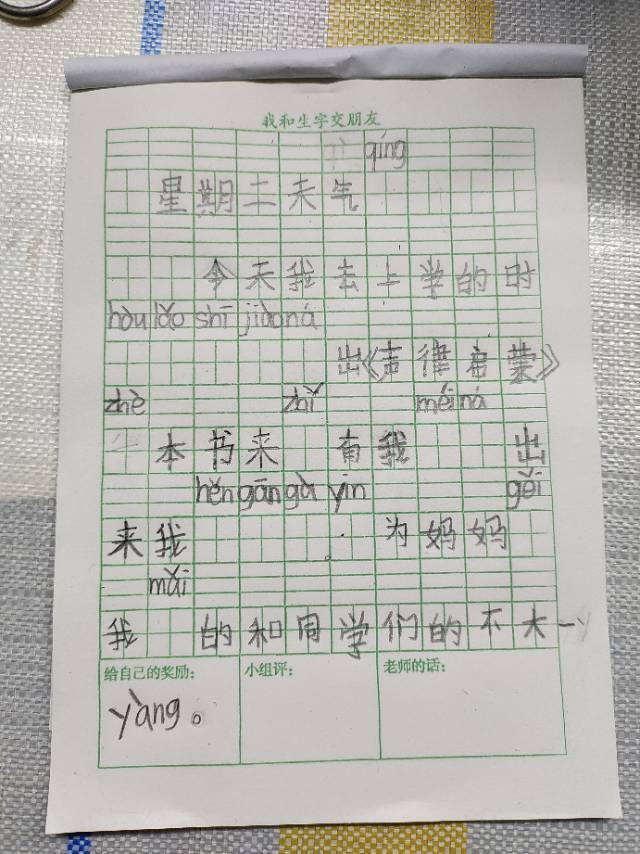 我和生字交朋友
qíng
星期二天气
今天我去上学的时
hòu lǎo shī jiào ná
出《声律启蒙》
zhè zhǐ méi ná
一本书来 有我 出
hěn gān gà yīn gěi
来我 。 为妈妈
mǎi
我 的和同学们的不大一
给自己的奖励: 小组评: 老师的话:
yàng。